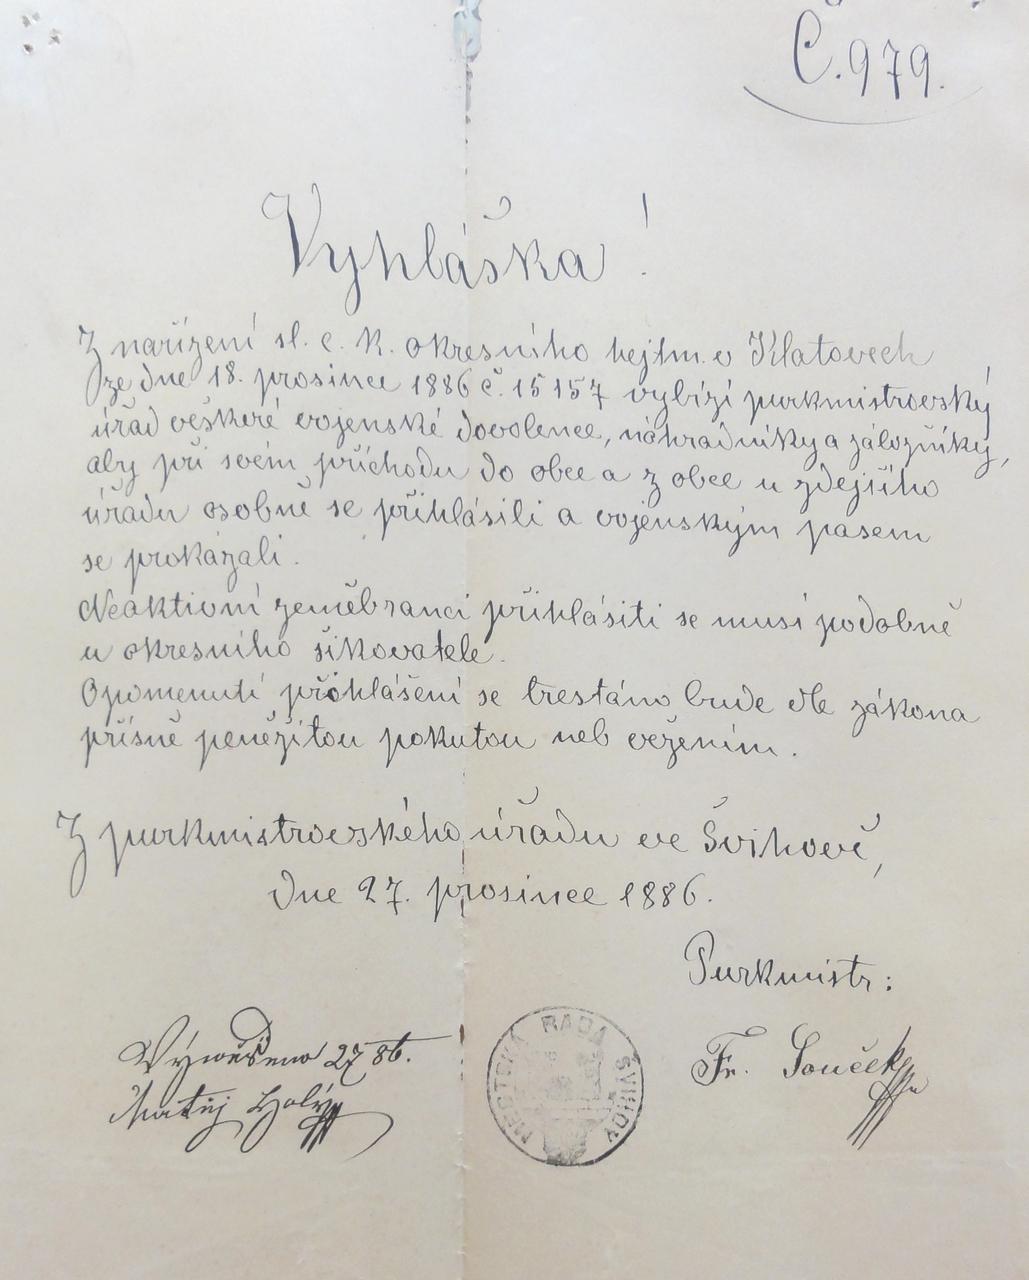 Č. 979.
Vyhláška!
Z nařízení sl. c. k. okresního hejtm. v Klatovech
ze dne 18. prosince 1886 č. 15157 vybízí purkmistrovský
úřad veškeré vojenské dovolence, náhradníky a záložníky,
aby při svém příchodu do obce a z obce u zdejšího
úřadu osobně se přihlásili a vojenským pasem
se prokázali.
Neaktivní zeměbranci přihlásiti se musí podobně
u okresního šikovatele.
Opomenutí přihlášení se trestáno bude dle zákona
přísně peněžitou pokutou neb vězením.
Z purkmistrovského úřadu ve Švihově,
dne 27. prosince 1886.
Purkmistr:
Vývěšeno 27 86.
Matěj Holý
MĚSTSKÁ RADA ŠVIHOV
Fr. Souček